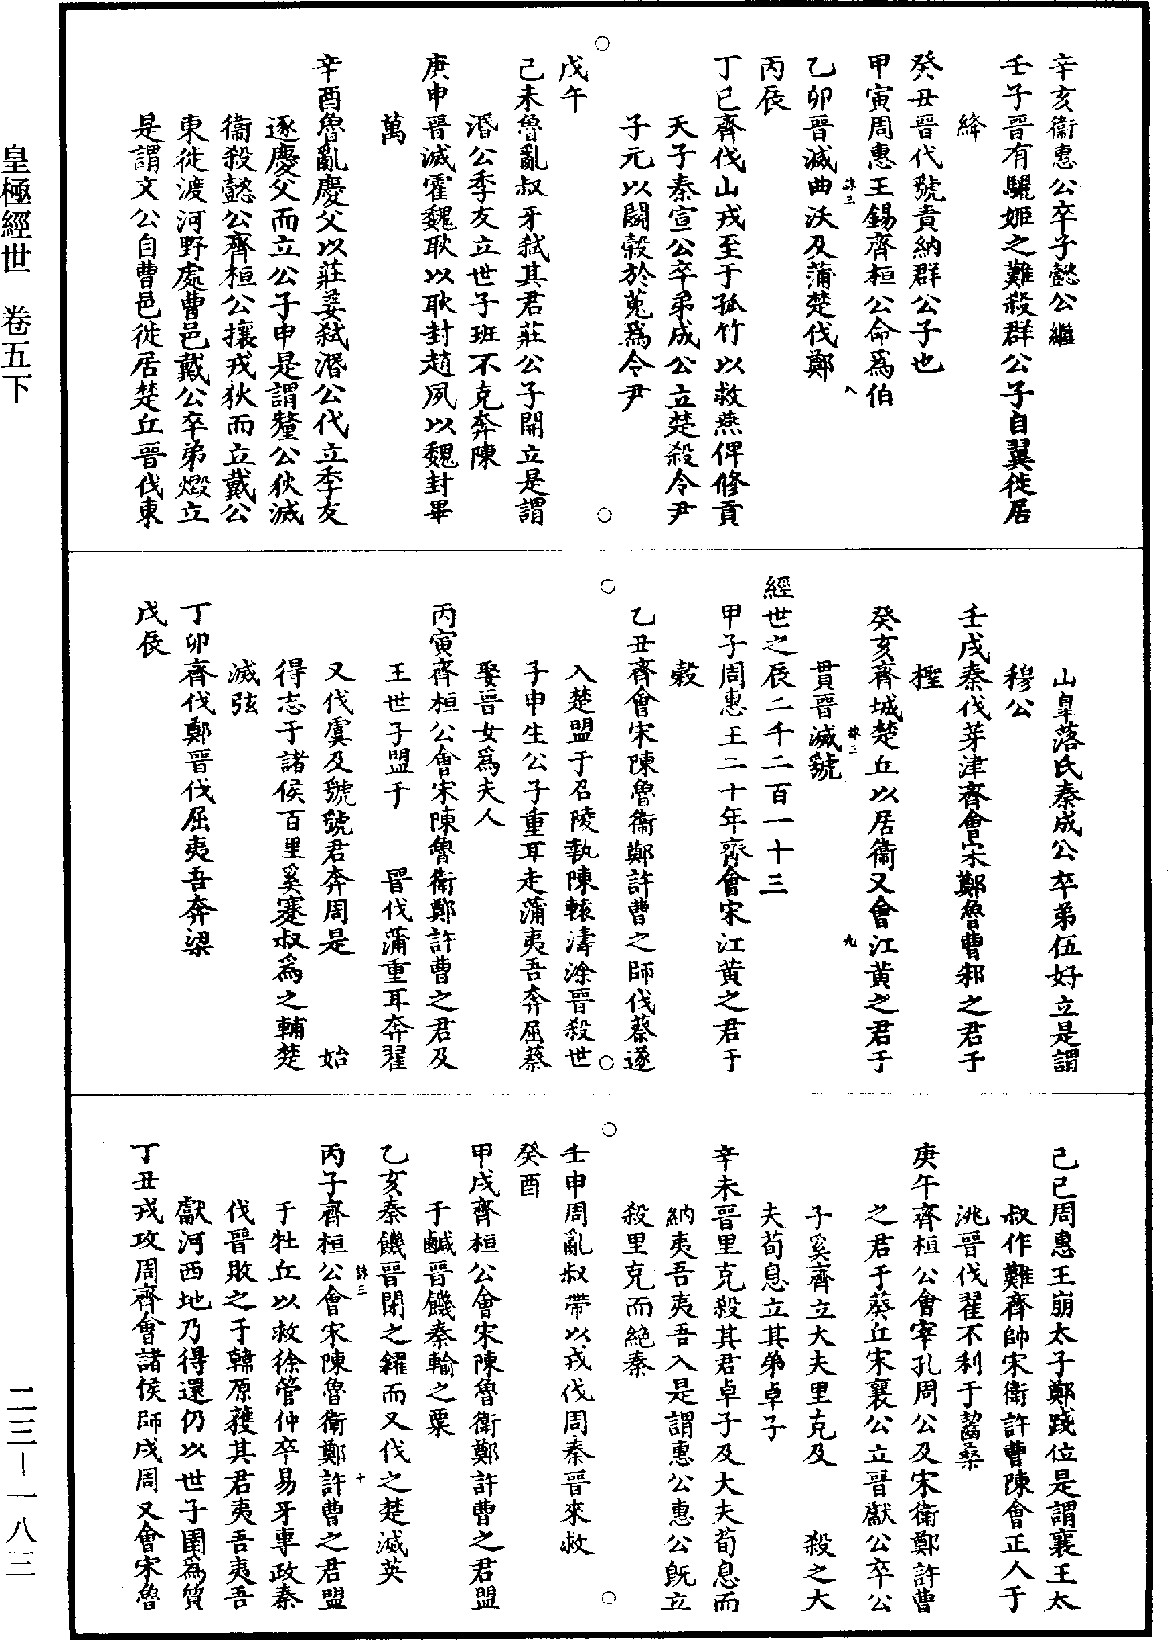 辛亥衞惠公卒子懿公繼
壬子晉有驪姬之難殺群公子自翼徙居
絳
癸丑晉代虢責納群公子也
甲寅周惠王錫齊桓公命爲伯
乙卯晉滅曲沃及蒲楚伐鄭
丙辰
丁巳齊伐山戎至于孤竹以救燕俾修貢
天子秦宣公卒弟成公立楚殺令尹
子元以鬪穀於菟爲令尹
戊午
己未魯亂叔牙弒其君莊公子開立是謂
湣公季友立世子班不克奔陳
庚申晉滅霍魏耿以耿封趙夙以魏封畢
萬
辛酉魯亂慶父以莊姜弒湣公代立季友
逐慶父而立公子申是謂釐公狄滅
衞殺懿公齊桓公攘戎狄而立戴公
東徙渡河野處曹邑戴公卒弟燬立
是謂文公自曹邑徙居楚丘晉伐東
山皐落氏秦成公卒弟伍好立是謂
穆公
壬戌秦伐茅津齊會宋鄭魯曹邾之君于
檉
癸亥齊城楚丘以居衞又會江黃之君于
貫晉滅虢
經世之辰二千二百一十三
甲子周惠王二十年齊會宋江黃之君于
穀
乙丑齊會宋陳魯衞鄭許曹之師伐蔡遂
入楚盟于召陵執陳轅濤涂晉殺世
子申生公子重耳走蒲夷吾奔屈蔡
娶晉女爲夫人
丙寅齊桓公會宋陳魯衞鄭許曹之君及
王世子盟于 晉伐蒲重耳奔翟
又伐虞及虢虢君奔周是 始
得志于諸侯百里奚蹇叔爲之輔楚
滅弦
丁卯齊伐鄭晉伐屈夷吾奔梁
戊辰
己巳周惠王崩太子鄭踐位是謂襄王太
叔作難齊帥宋衞許曹陳會王人于
洮晉伐翟不利于齧桑
庚午齊桓公會宰孔周公及宋衞鄭許曹
之君于葵丘宋襄公立晉獻公卒公
子奚齊立大夫里克及 殺之大
夫荀息立其弟卓子
辛未晉里克殺其君卓子及大夫荀息而
納夷吾夷吾入是謂惠公惠公既立
殺里克而絕秦
壬申周亂叔帶以戎伐周秦晉來救
癸酉
甲戌齊桓公會宋陳魯衞鄭許曹之君盟
于鹹晉饑秦輸之粟
乙亥秦饑晉閉之糴而又伐之楚滅英
丙子齊桓公會宋陳魯衞鄭許曹之君盟
于牡丘以救徐管仲卒易牙專政秦
伐晉敗之于韓原獲其君夷吾夷吾
獻河西地乃得還仍以世子圉爲質
丁丑戎攻周齊會諸侯師戍周又會宋魯
皇極經世 卷五下
二三—一八三